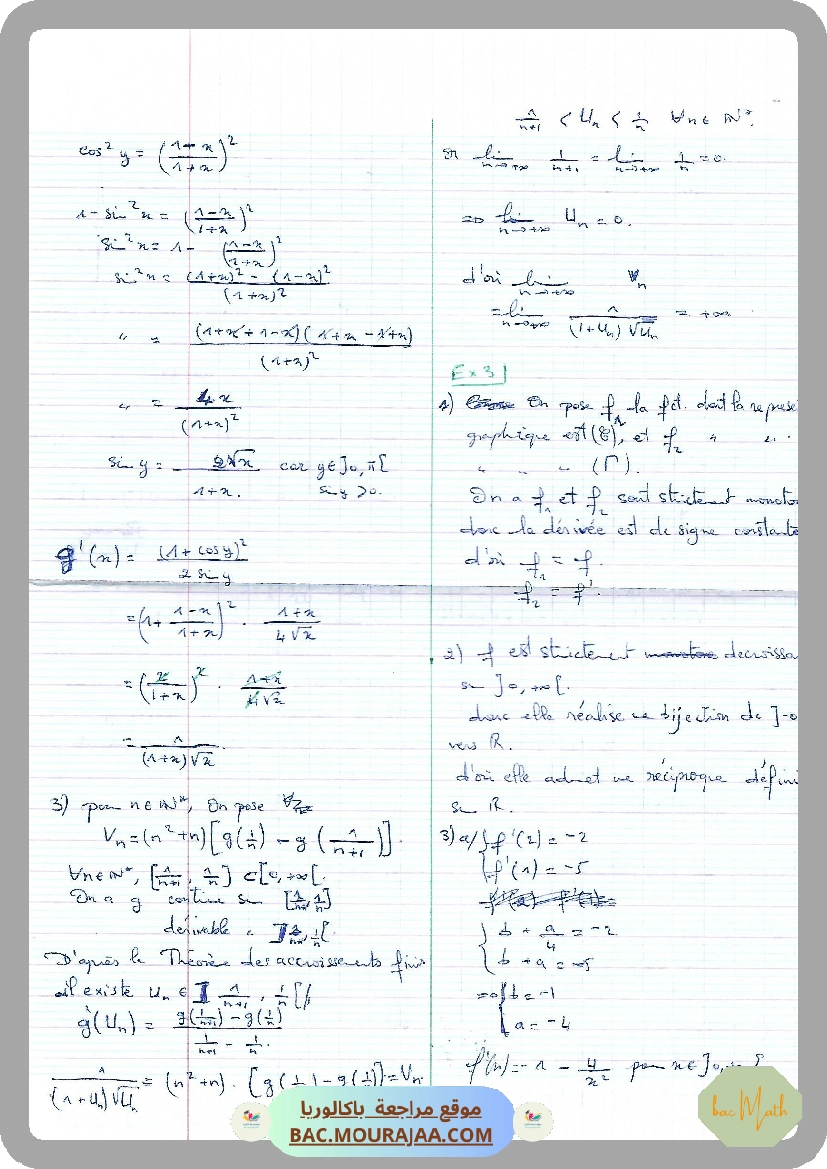 cos² y = ((1-x)/(1+x))²
1-sin²x = ((1-x)/(1+x))²
sin²x = 1 - ((1-x)/(1+x))²
sin²x = ((1+x)² - (1-x)²)/(1+x)²
" = ((1+x+1-x)(1+x-1+x))/(1+x)²
" = 4x/(1+x)²
sin y = 2√x/(1+x). car y∈]0,π[
sin y >0.
g'(x) = (1+cos y)²/(2 sin y)
= (1+ (1-x)/(1+x))² . (1+x)/(4√x)
= (2/(1+x))² . (1+x)/(4√x)
= 1/((1+x)√x).
3) pour n∈IN*, On pose
Vn = (n²+n)[g(1/n) - g(1/(n+1))].
∀n∈IN*, [1/(n+1), 1/n] ⊂ [0,+∞[.
On a g continue sur [1/(n+1), 1/n]
dérivable " ]1/(n+1), 1/n[
D'après le Théorème des accroissements finis
il existe Un ∈ ]1/(n+1), 1/n[ /
g'(Un) = (g(1/(n+1)) - g(1/n))/(1/(n+1) - 1/n).
1/((1+Un)√Un) = (n²+n).[g(1/n) - g(1/(n+1))] = Vn
1/(n+1) < Un < 1/n ∀n∈IN*.
or lim n→+∞ 1/(n+1) = lim n→+∞ 1/n = 0.
=> lim n→+∞ Un = 0.
d'où lim n→+∞ Vn
= lim n→+∞ 1/((1+Un)√Un) = +∞
Ex 3
1) On pose f1 la fct. dont la repese
graphique est (C), et f2 " "
" " " (Γ).
On a f1 et f2 sont strictement monoto
donc la dérivée est de signe constante
d'où f1 = f.
f2 = f'
2) f est strictement decroissa
sur ]0,+∞[.
donc elle réalise une bijection de ]-0
vers IR.
d'où elle admet une réciproque défini
sur IR.
3) a/ { f'(2) = -2
{ f'(1) = -5
{ b + a/4 = -2
{ b + a = -5
=> { b = -1
{ a = -4
f'(x) = -1 - 4/x² pour x∈]0,
bacMath
موقع مراجعة باكالوريا
BAC.MOURAJAA.COM